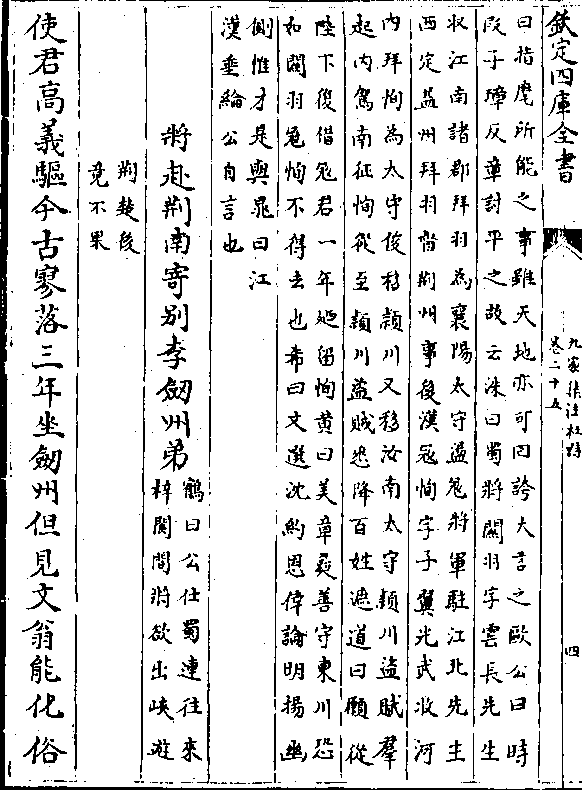 欽定四庫全書
九家集注杜詩
卷二十五
四
曰指麾所能之事雖天地亦可回誇大言之歐公曰時
段子璋反章討平之故云洙曰蜀將關羽字雲長先生
収江南諸郡拜羽為襄陽太守盪㓂將軍駐江北先主
西定益州拜羽督荆州事後漢㓂恂字子翼光武收河
内拜恂為太守後移潁川又移汝南太守潁川盜賊羣
起内駕南征恂從至潁川盜賊悉降百姓遮道曰願從
陛下復借㓂君一年廼留恂黃曰美章彛善守東川恐
如關羽㓂恂不得去也希曰文選沈約恩倖論明揚幽
側惟才是與晁曰江
漢垂綸公自言也
將赴荆南寄别李劔州弟
鶴曰公仕蜀連往來
梓閬間將欲出峽遊
荆楚後
竟不果
使君高義驅今古寥落三年坐劔州但見文翁能化俗